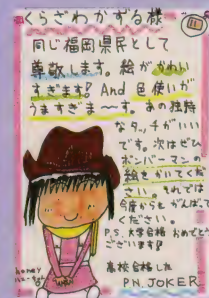 くらざわかずる様
同じ福岡県民として
尊敬します。絵がかわい
すぎます!! And 色使いが
うますぎま〜す。あの独特
なタッチがいい
です。次はぜひ
ボンバーマンの
絵をかいてくだ
さい。それでは
今度からもがんばって
ください。
P.S. 大学合格 おめでとう
ございます!!
高校合格した
P.N. JOKER
honey